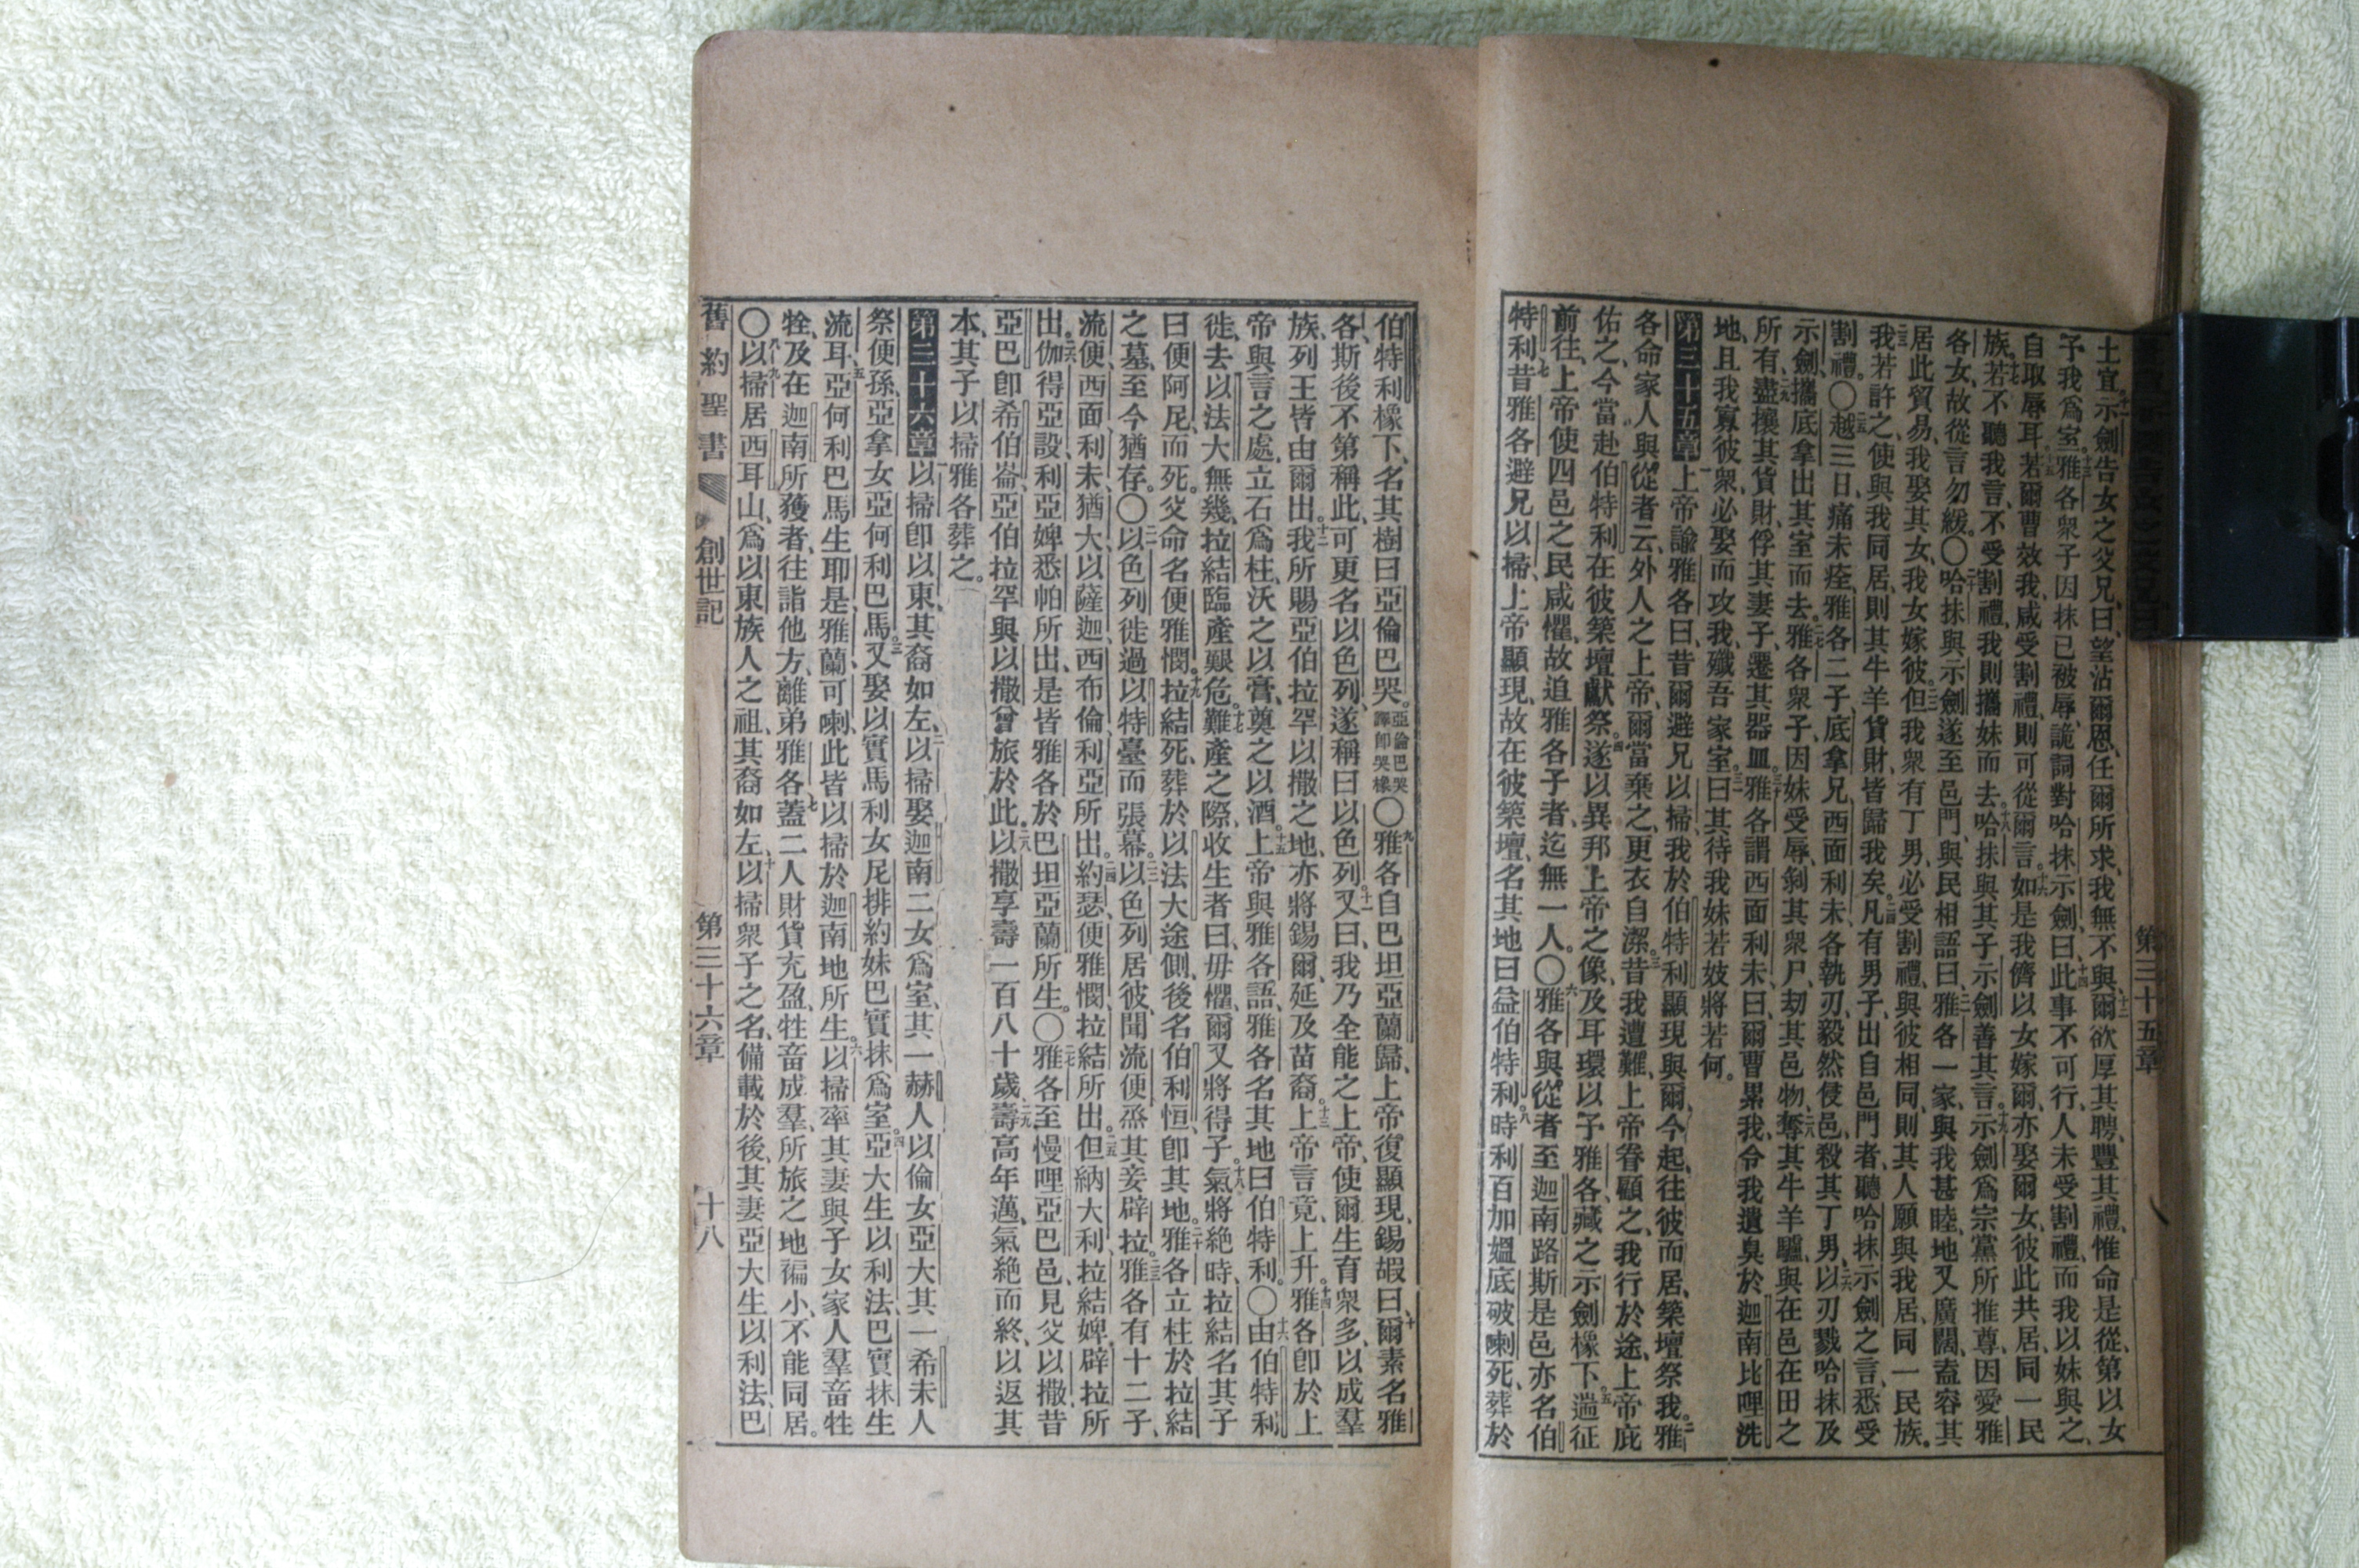 第三十五章
土宜、示劍告女之父兄曰、望沾爾恩、任爾所求、我無不與、爾欲厚其聘、豐其禮、惟命是從、第以女
予我爲室、雅各衆子因妹已被辱、詭詞對哈抹示劍曰、此事不可行、人未受割禮、而我以妹與之、
自取辱耳、若爾曹效我、咸受割禮、則可從爾言。如是我儕以女嫁爾、亦娶爾女、彼此共居、同一民
族。若不聽我言、不受割禮、我則攜妹而去。哈抹與其子示劍善其言。示劍爲宗黨所推尊、因愛雅
各女、故從言勿緩。〇哈抹與示劍遂至邑門、與民相語曰、雅各一家、與我甚睦、地又廣闊、盍容其
居此貿易、我娶其女、我女嫁彼、但我衆有丁男、必受割禮、與彼相同、則其人願與我居、同一民族。
我若許之、使與我同居、則其牛羊貨財、皆歸我矣。凡有男子、出自邑門者、聽哈抹示劍之言、悉受
割禮。〇越三日、痛未痊、雅各二子、底拿兄西面利未、各執刃毅然侵邑、殺其丁男、以刃戮哈抹及
示劍、攜底拿出其室而去。雅各衆子、因妹受辱、剝其衆尸、刼其邑物、奪其牛羊驢、與在邑在田之
所有、盡攘其貨財、俘其妻子、遷其器皿。雅各謂西面利未曰、爾曹累我、令我遺臭於迦南比哩洗
地、且我寡彼衆、必娶而攻我、殲吾家室。曰其待我妹若妓、將若何。
第三十五章上帝諭雅各曰、昔爾避兄以掃、我於伯特利顯現與爾、今起、往彼而居、築壇祭我。雅
各命家人與從者云、外人之上帝、爾當棄之、更衣自潔。昔我遭難、上帝眷顧之、我行於途、上帝庇
佑之、今當赴伯特利、在彼築壇獻祭。遂以異邦上帝之像、及耳環以予雅各、藏之示劍橡下。遄征
前往、上帝使四邑之民咸懼、故追雅各子者、迄無一人。〇雅各與從者至迦南路斯、是邑亦名伯
特利、昔雅各避兄以掃、上帝顯現、故在彼築壇、名其地曰益伯特利。時利百加媼底破喇死、葬於
伯特利橡下、名其樹曰亞倫巴哭。亞倫巴哭譯卽哭橡〇雅各自巴坦亞蘭歸、上帝復顯現、錫嘏曰、爾素名雅
各、斯後不第稱此、可更名以色列、遂稱曰以色列。又曰、我乃全能之上帝、使爾生育衆多、以成羣
族、列王皆由爾出。我所賜亞伯拉罕以撒之地、亦將錫爾、延及苗裔。上帝言竟、上升。雅各卽於上
帝與言之處、立石爲柱、沃之以膏、奠之以酒。上帝與雅各語、雅各名其地曰伯特利。〇由伯特利
徙去以法大無幾、拉結臨產艱危。難產之際、收生者曰、毋懼、爾又將得子。氣將絕時、拉結名其子
曰便阿尼、而死。父命名便雅憫。拉結死、葬於以法大途側、後名伯利恒、卽其地。雅各立柱於拉結
之墓、至今猶存。〇以色列徙過以特臺而張幕。以色列居彼、聞流便烝其妾辟拉。雅各有十二子、
流便、西面、利未、猶大、以薩迦、西布倫、利亞所出。約瑟、便雅憫、拉結所出。但、納大利、拉結婢辟拉所
出。伽得亞設、利亞婢悉帕所出、是皆雅各於巴坦亞蘭所生。〇雅各至慢哩亞巴邑、見父以撒、昔
亞巴卽希伯崙、亞伯拉罕與以撒曾旅於此。以撒享壽一百八十歲。壽高年邁、氣絕而終、以返其
本、其子以掃雅各葬之。
第三十六章以掃卽以東、其裔如左、以掃娶迦南二女爲室、其一赫人以倫女亞大、其一希未人
祭便孫、亞拿女亞何利巴馬。又娶以實馬利女、尼排約妹巴實抹爲室。亞大生以利法、巴實抹生
流耳、亞何利巴馬生耶是雅蘭可喇、此皆以掃於迦南地所生。以掃率其妻與子女家人、羣畜牲
牷、及在迦南所獲者、往詣他方、離弟雅各、蓋二人財貨充盈、牲畜成羣、所旅之地褊小、不能同居。
〇以掃居西耳山、爲以東族人之祖、其裔如左、以掃衆子之名、備載於後、其妻亞大生以利法、巴
舊約聖書 創世記 第三十六章 十八